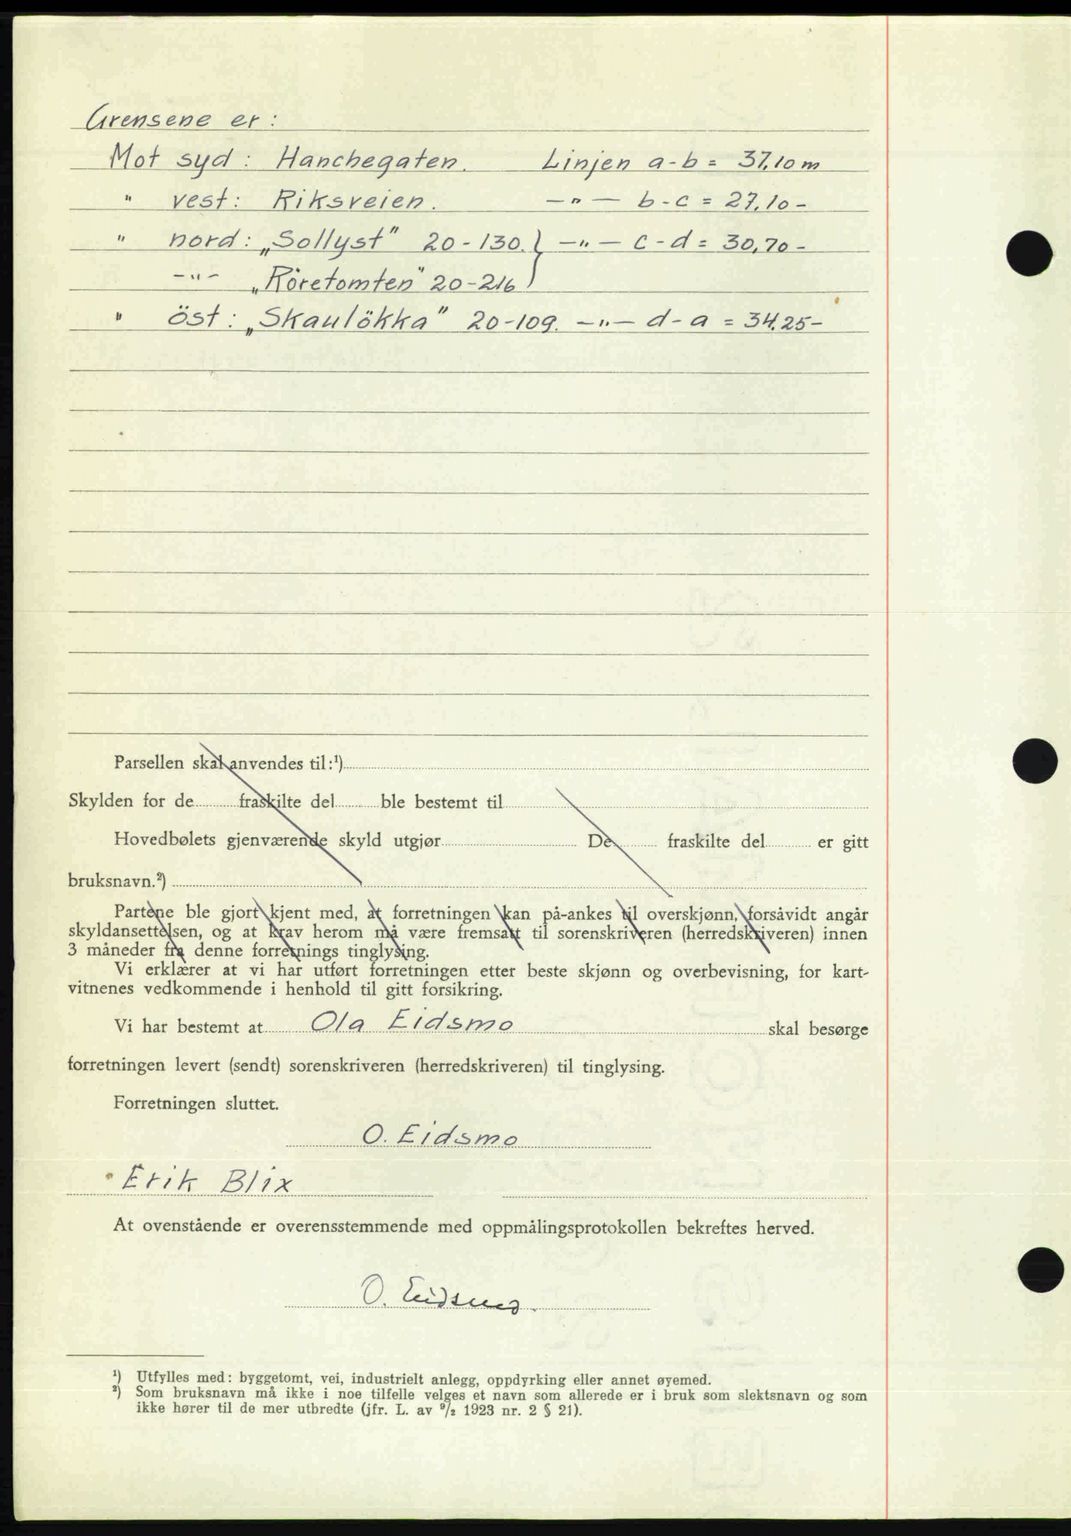 Grensene er :
Mot syd : Hanchegaten. Linjen a-b = 37,10 m
" vest : Riksveien. —"— b-c = 27,10 -
" nord : „Sollyst" 20-130. } —"— c-d = 30,70 -
-"- „Röretomten" 20-216
" öst : „Skaulökka" 20-109. —"— d-a = 34,25 -
Parsellen skal anvendes til:¹)
Skylden for de fraskilte del ble bestemt til
Hovedbølets gjenværende skyld utgjør De fraskilte del er gitt
bruksnavn.²)
Partene ble gjort kjent med, at forretningen kan på-ankes til overskjønn, forsåvidt angår
skyldansettelsen, og at krav herom må være fremsatt til sorenskriveren (herredskriveren) innen
3 måneder fra denne forretnings tinglysing.
Vi erklærer at vi har utført forretningen etter beste skjønn og overbevisning, for kart-
vitnenes vedkommende i henhold til gitt forsikring.
Vi har bestemt at Ola Eidsmo skal besørge
forretningen levert (sendt) sorenskriveren (herredskriveren) til tinglysing.
Forretningen sluttet.
O. Eidsmo
Erik Blix
At ovenstående er overensstemmende med oppmålingsprotokollen bekreftes herved.
O. Eidsmo.
¹) Utfylles med: byggetomt, vei, industrielt anlegg, oppdyrking eller annet øyemed.
²) Som bruksnavn må ikke i noe tilfelle velges et navn som allerede er i bruk som slektsnavn og som
ikke hører til de mer utbredte (jfr. L. av ⁹/₂ 1923 nr. 2 § 21).